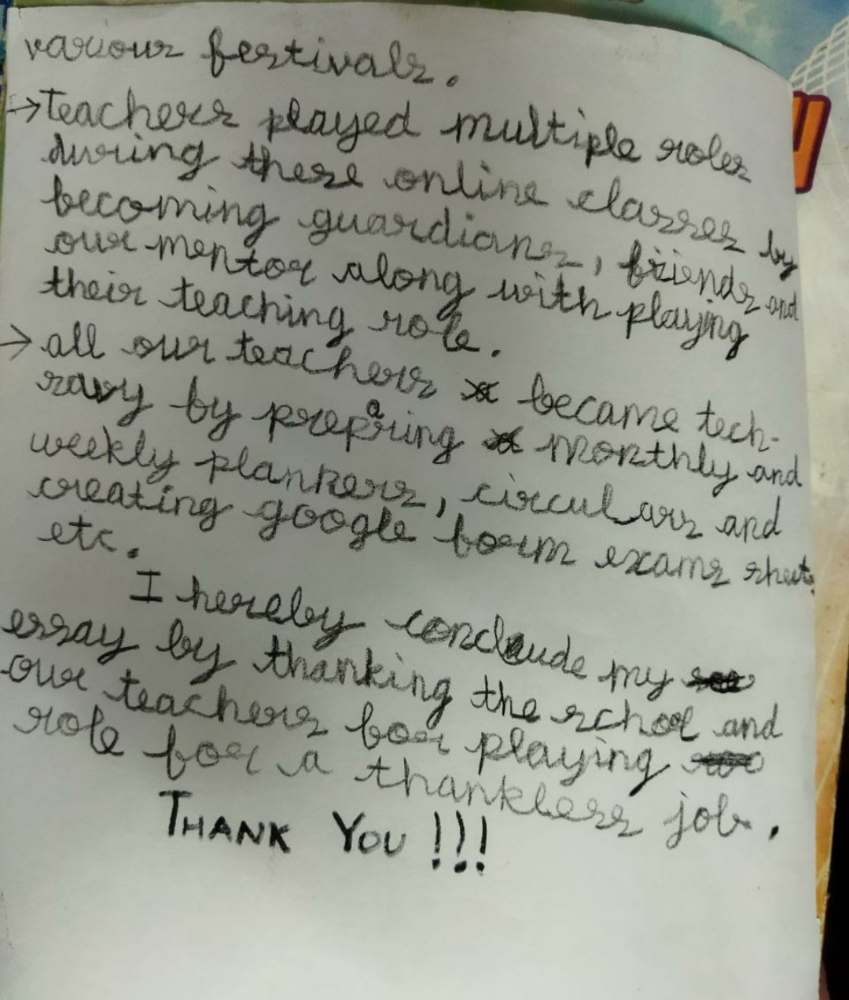 various festivals.
→ teachers played multiple roles
during these online classes by
becoming guardians, friends and
our mentor along with playing
their teaching role.
→ all our teachers became tech-
savy by preparing monthly and
weekly planners, circulars and
creating google form exams sheet.
etc.
I hereby conclude my
essay by thanking the school and
our teachers for playing
role for a thankless job.
THANK YOU!!!